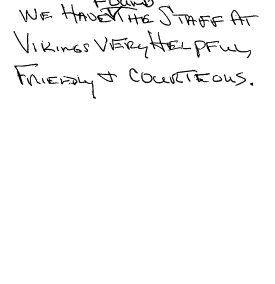 WE HAVE FOUND THE STAFF AT
VIKINGS VERY HELPFUL,
FRIENDLY & COURTEOUS.